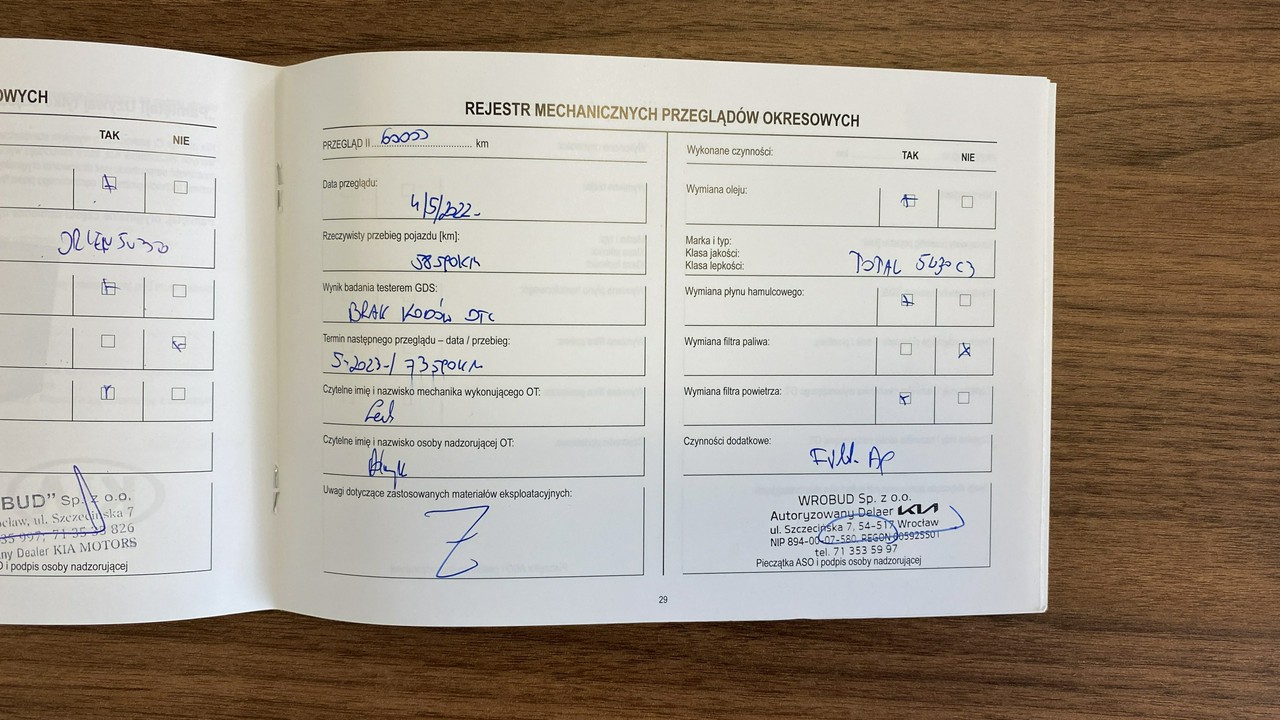 OWYCH
TAK NIE
ORLEN 5W30
BUD" Sp. z o.o.
cław, ul. Szczecińska 7
35 997, 71 35 33 826
ny Dealer KIA MOTORS
O i podpis osoby nadzorującej
REJESTR MECHANICZNYCH PRZEGLĄDÓW OKRESOWYCH
PRZEGLĄD II 60000 km
Data przeglądu:
4/5/2022
Rzeczywisty przebieg pojazdu [km]:
Wynik badania testerem GDS:
BRAK KODÓW DTC
Termin następnego przeglądu – data / przebieg:
5.2023
Czytelne imię i nazwisko mechanika wykonującego OT:
Czytelne imię i nazwisko osoby nadzorującej OT:
Uwagi dotyczące zastosowanych materiałów eksploatacyjnych:
Z
Wykonane czynności: TAK NIE
Wymiana oleju:
Marka i typ:
Klasa jakości:
Klasa lepkości:
TOTAL 5W30 C3
Wymiana płynu hamulcowego:
Wymiana filtra paliwa:
Wymiana filtra powietrza:
Czynności dodatkowe:
WROBUD Sp. z o.o.
Autoryzowany Delaer KIA
ul. Szczecińska 7, 54-517 Wrocław
NIP 894-00-07-580, REGON 005925501
tel. 71 353 59 97
Pieczątka ASO i podpis osoby nadzorującej
29